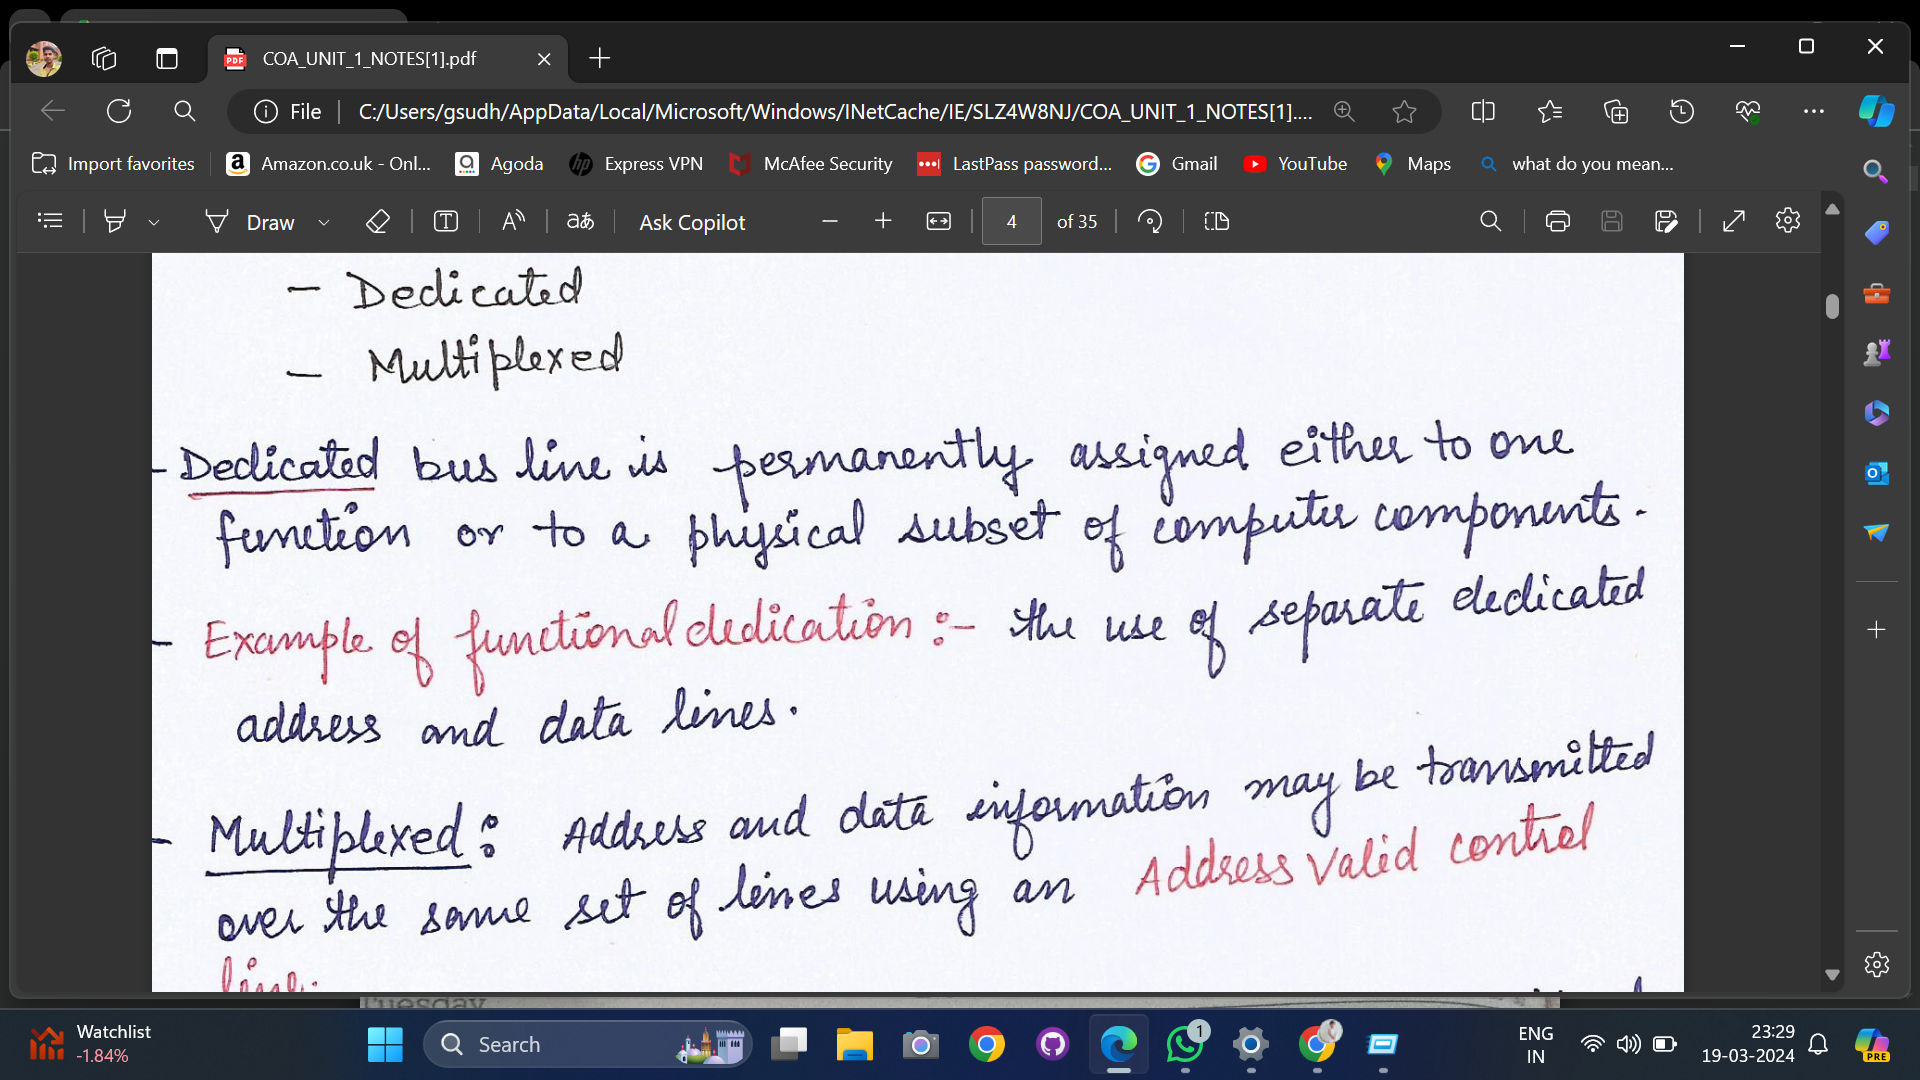 COA_UNIT_1_NOTES[1].pdf
File
C:/Users/gsudh/AppData/Local/Microsoft/Windows/INetCache/IE/SLZ4W8NJ/COA_UNIT_1_NOTES[1]....
Import favorites
Amazon.co.uk - Onl...
Agoda
Express VPN
McAfee Security
LastPass password...
Gmail
YouTube
Maps
what do you mean...
Draw
Ask Copilot
4 of 35
- Dedicated
- Multiplexed
- Dedicated bus line is permanently assigned either to one
function or to a physical subset of computer components.
- Example of functional dedication :- the use of separate dedicated
address and data lines.
- Multiplexed : Address and data information may be transmitted
over the same set of lines using an Address Valid control
line.
Tuesday
Watchlist
-1.84%
Search
1
PRE
ENG
IN
23:29
19-03-2024